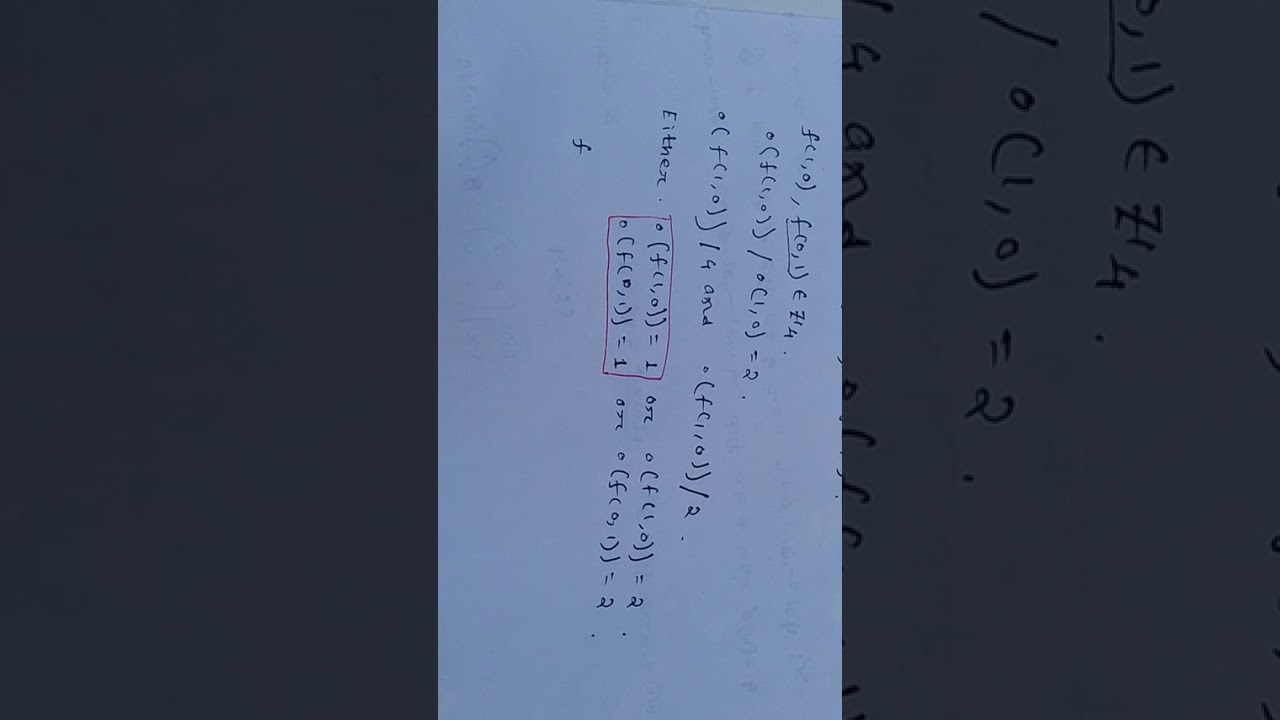 f(1,0), f(0,1) ∈ ℤ4.
o(f(1,0)) / o(1,0) = 2.
o(f(1,0)) / 4 and o(f(1,0)) / 2.
Either. o(f(1,0)) = 1 or o(f(1,0)) = 2.
o(f(0,1)) = 1 or o(f(0,1)) = 2.
f